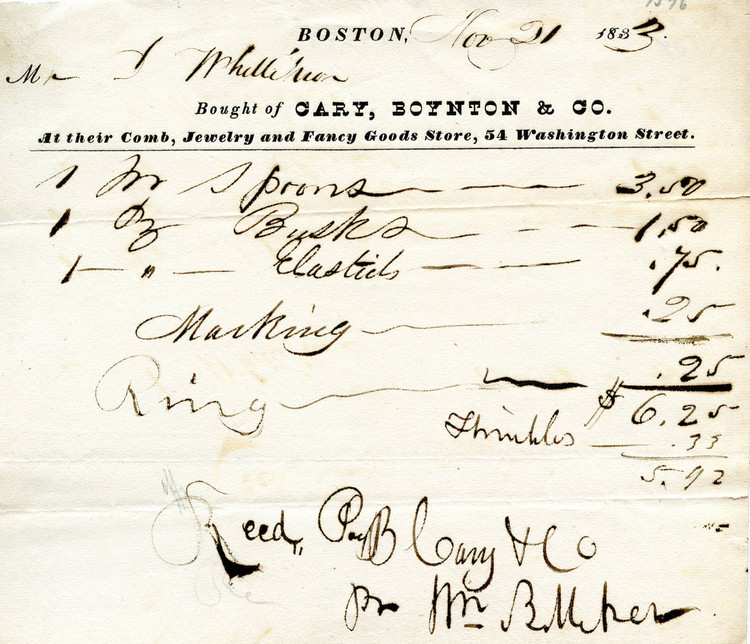 BOSTON, Nov 21 1833.
Mr
Bought of CARY, BOYNTON & CO.
At their Comb, Jewelry and Fancy Goods Store, 54 Washington Street.
1 Spoons 3.50
1 Dz Busks 1,50
1 " Elastick .75.
Marking .25
Ring .25
$ 6.25
.33
5.92
Recd, Pay B Cary & Co
pr Wm